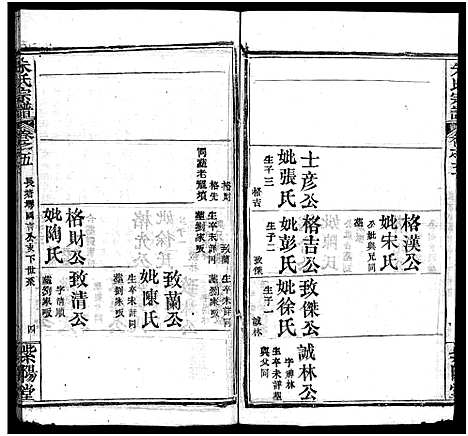 士彦公
妣張氏
生子三
格吉
格吉公
妣彭氏
生子二
致傑
致傑公
妣徐氏
生子一
誠林
誠林公
字彬林
生卒未詳同
與父同
格漢公
妣宋氏
公妣與兄同
朱氏宗譜
卷之五
長塘灣國言公支下世系
四
紫陽堂
格財
格先
同葬老屋塆
格財公
妣陶氏
致蘭
生卒未詳同
葬劉家坂
致蘭公
妣陳氏
生卒未詳同
葬劉家坂
致清公
字清順
葬劉家坂